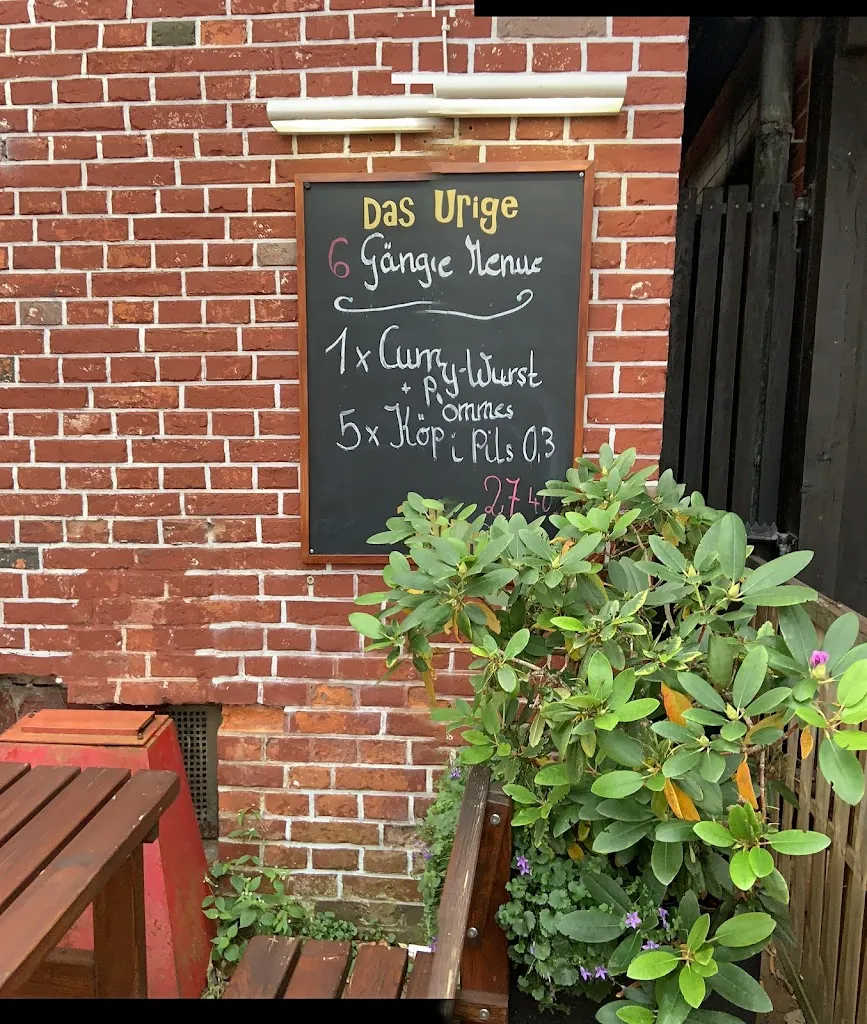 Das Urige
6 Gänge Menue
1x Curry-Wurst
+ Pommes
5x Köpi Pils 0,3
27 40